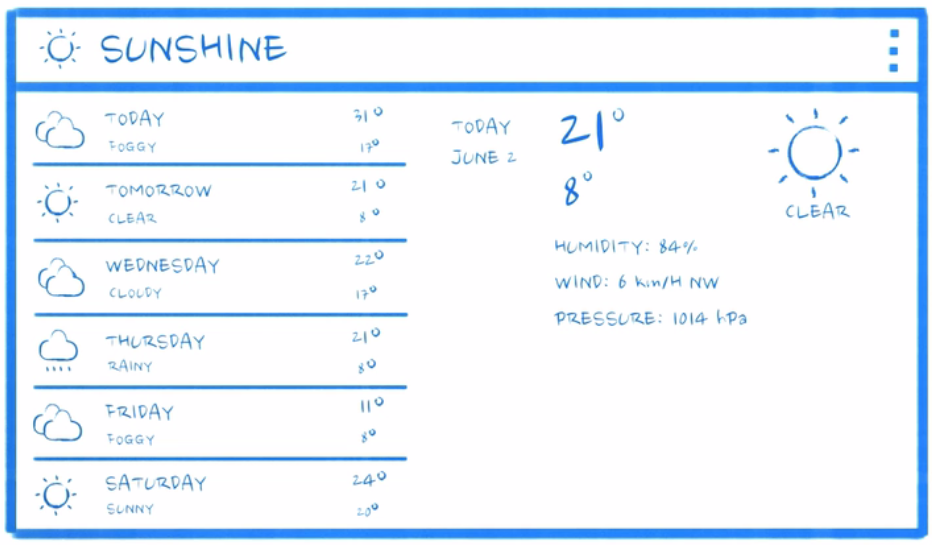 SUNSHINE
TODAY 31°
FOGGY 17°
TOMORROW 21°
CLEAR 8°
WEDNESDAY 22°
CLOUDY 17°
THURSDAY 21°
RAINY 8°
FRIDAY 11°
FOGGY 8°
SATURDAY 24°
SUNNY 20°
TODAY 21°
JUNE 2
8°
CLEAR
HUMIDITY: 84%
WIND: 6 km/H NW
PRESSURE: 1014 hPa